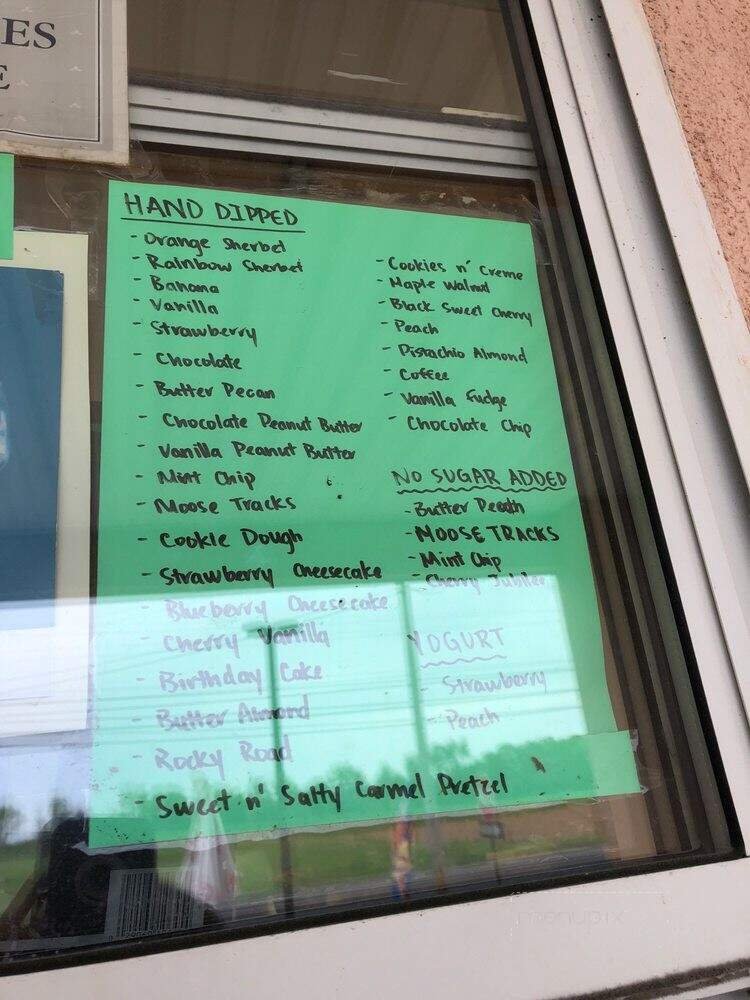 ES
E
HAND DIPPED
- Orange Sherbet
- Rainbow Sherbet
- Banana
- Vanilla
- Strawberry
- Chocolate
- Butter Pecan
- Chocolate Peanut Butter
- Vanilla Peanut Butter
- Mint Chip
- Moose Tracks
- Cookie Dough
- Strawberry Cheesecake
- Blueberry Cheesecake
- Cherry Vanilla
- Birthday Cake
- Butter Almond
- Rocky Road
- Sweet n' Salty Carmel Pretzel
- Cookies n' Creme
- Maple Walnut
- Black Sweet Cherry
- Peach
- Pistachio Almond
- Coffee
- Vanilla Fudge
- Chocolate Chip
NO SUGAR ADDED
- Butter
- MOOSE TRACKS
- Mint Chip
- Cherry Jubilee
YOGURT
- Strawberry
- Peach
menupix